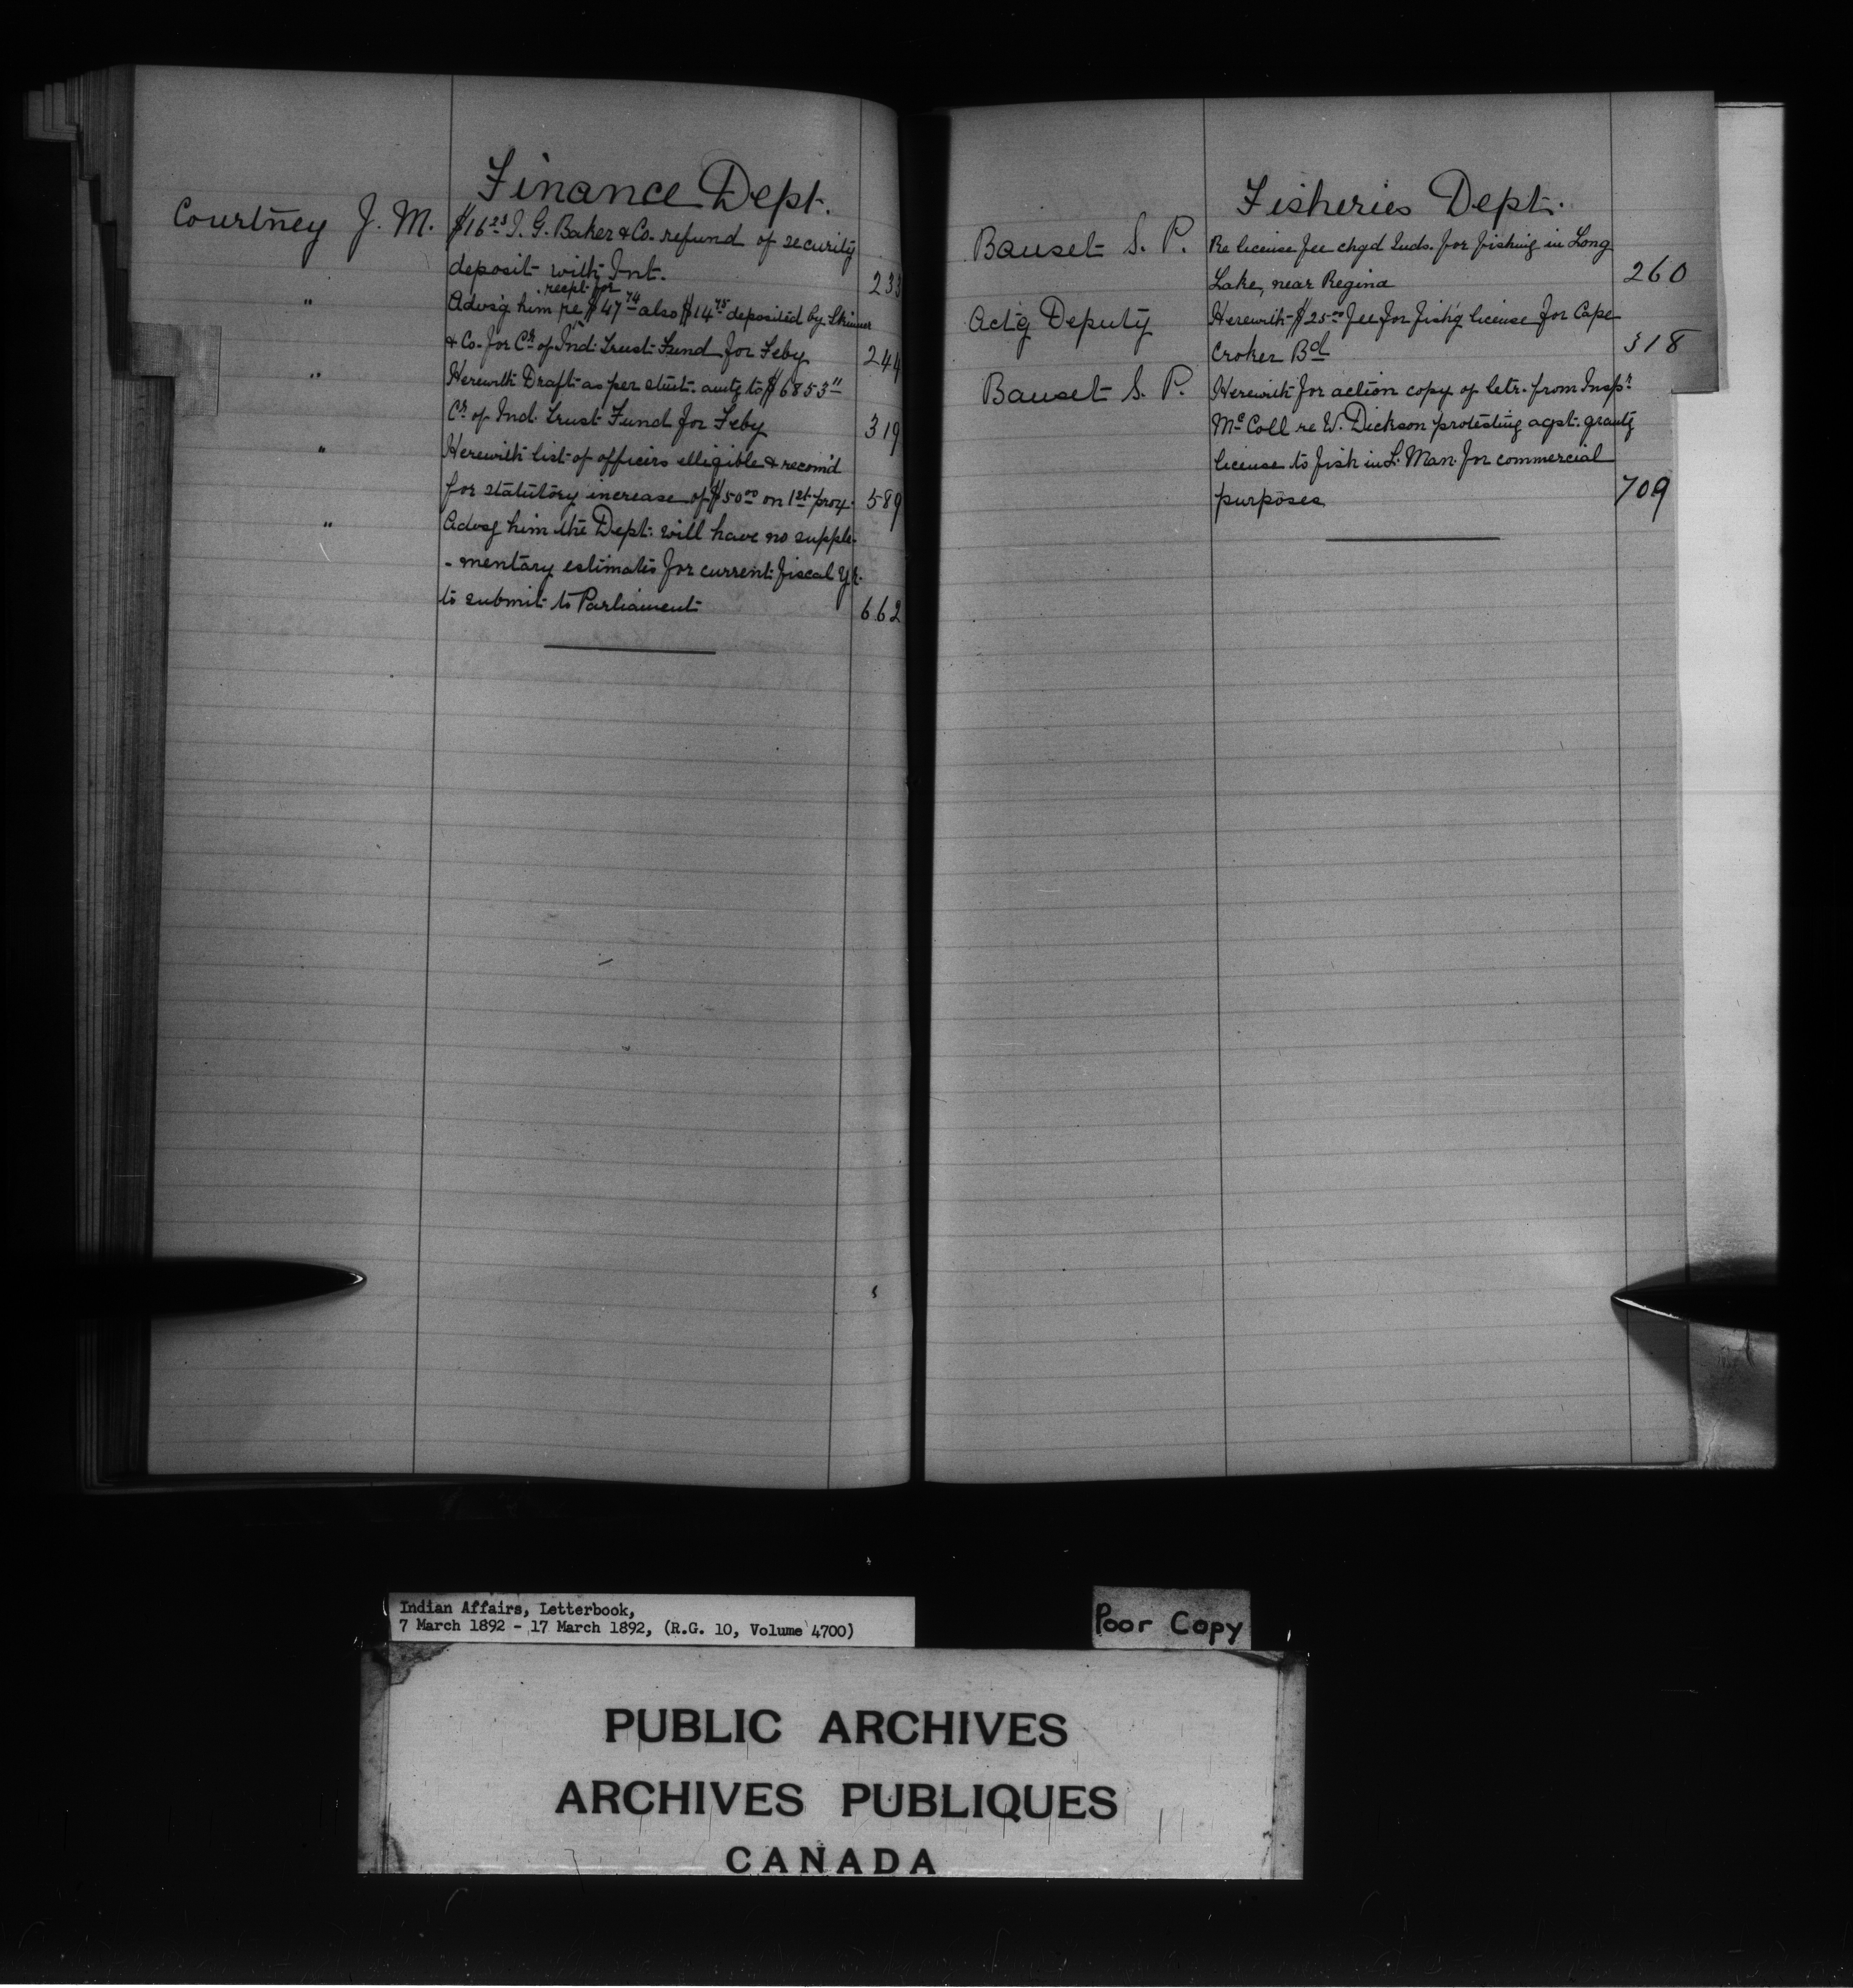 Finance Dept.
Courtney J. M. $16 25 I. G. Baker & Co. refund of security
deposit with Int. 233
recpt for
" Advs'g him re $47 74 also $14 75 deposited by Skinner
& Co. for Cr of Ind. Trust Fund for Feby 244
" Herewith Draft as per stmt. amtg to $6853 11
Cr of Ind. Trust Fund for Feby 319
" Herewith list of officers elligible & recom'd
for statutory increase of $50 00 on 1st prox. 589
" Advsg him the Dept. will have no supple-
- mentary estimates for current fiscal Yr.
to submit to Parliament 662
Fisheries Dept.
Bauset S. P. Re license fee chgd Inds. for fishing in Long
Lake, near Regina 260
Act'g Deputy Herewith $25 00 fee for fish'g license for Cape
Croker Bd 318
Bauset S. P. Herewith for action copy of letr. from Inspr
McColl re W. Dickson protesting agst. grantg
license to fish in L. Man. for commercial
purposes 709
Indian Affairs, Letterbook,
7 March 1892 - 17 March 1892, (R.G. 10, Volume 4700)
Poor Copy
PUBLIC ARCHIVES
ARCHIVES PUBLIQUES
CANADA